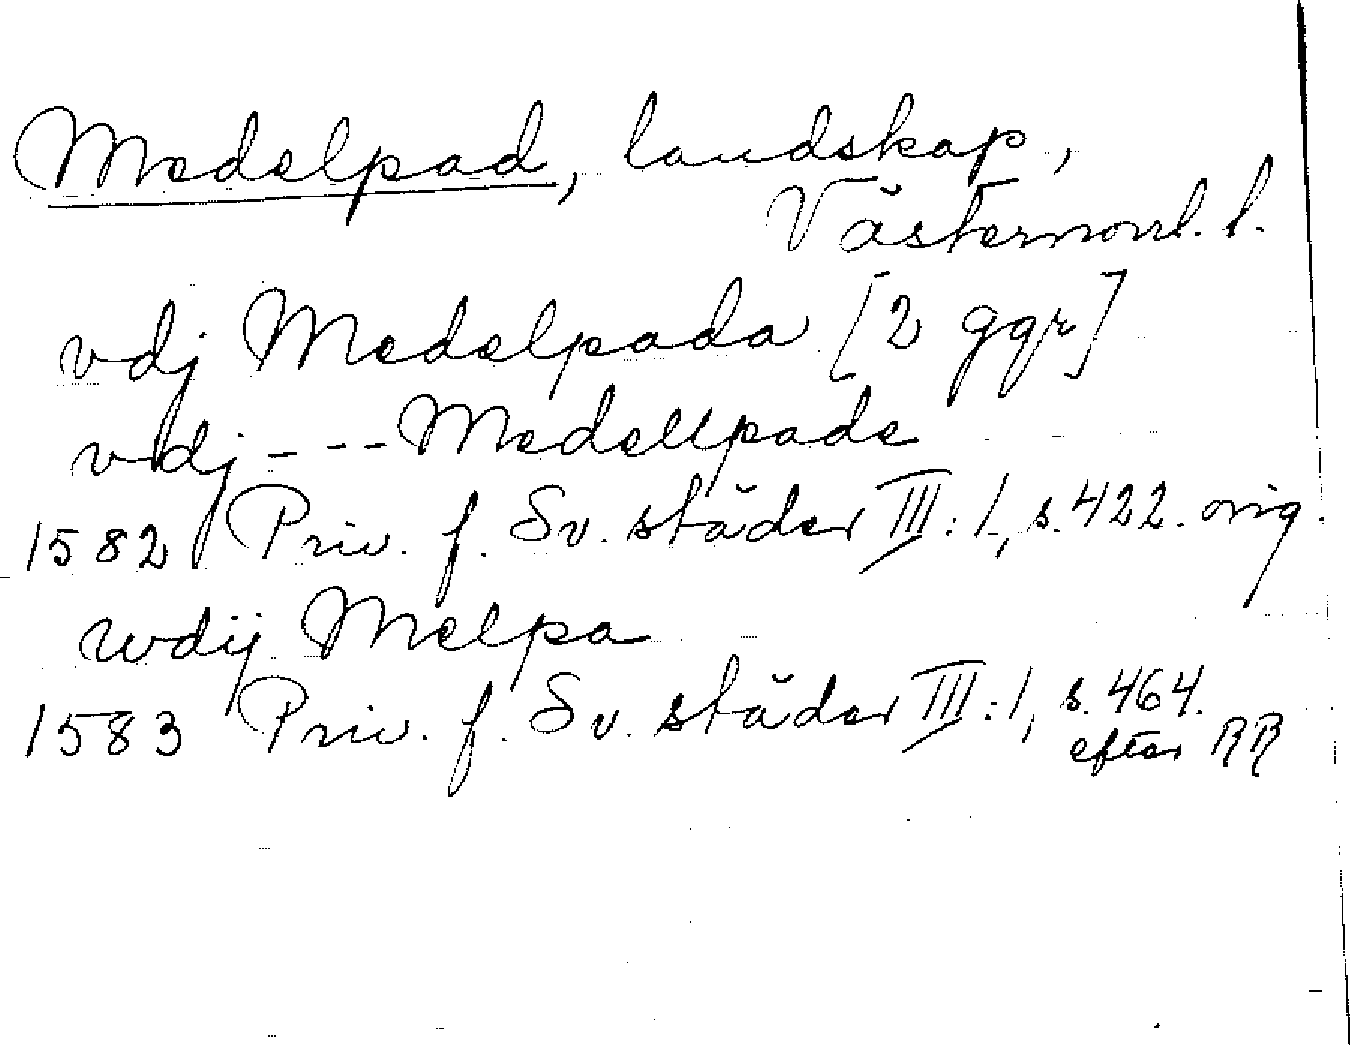 Medelpad, landskap,
Västernorrl. l.
vdj Medelpada [2 ggr]
vdj --- Medellpade
1582 Priv. f. Sv. städer III:1, s. 422. orig.
wdij Melpa
1583 Priv. f. Sv. städer III:1, s. 464.
efter RR